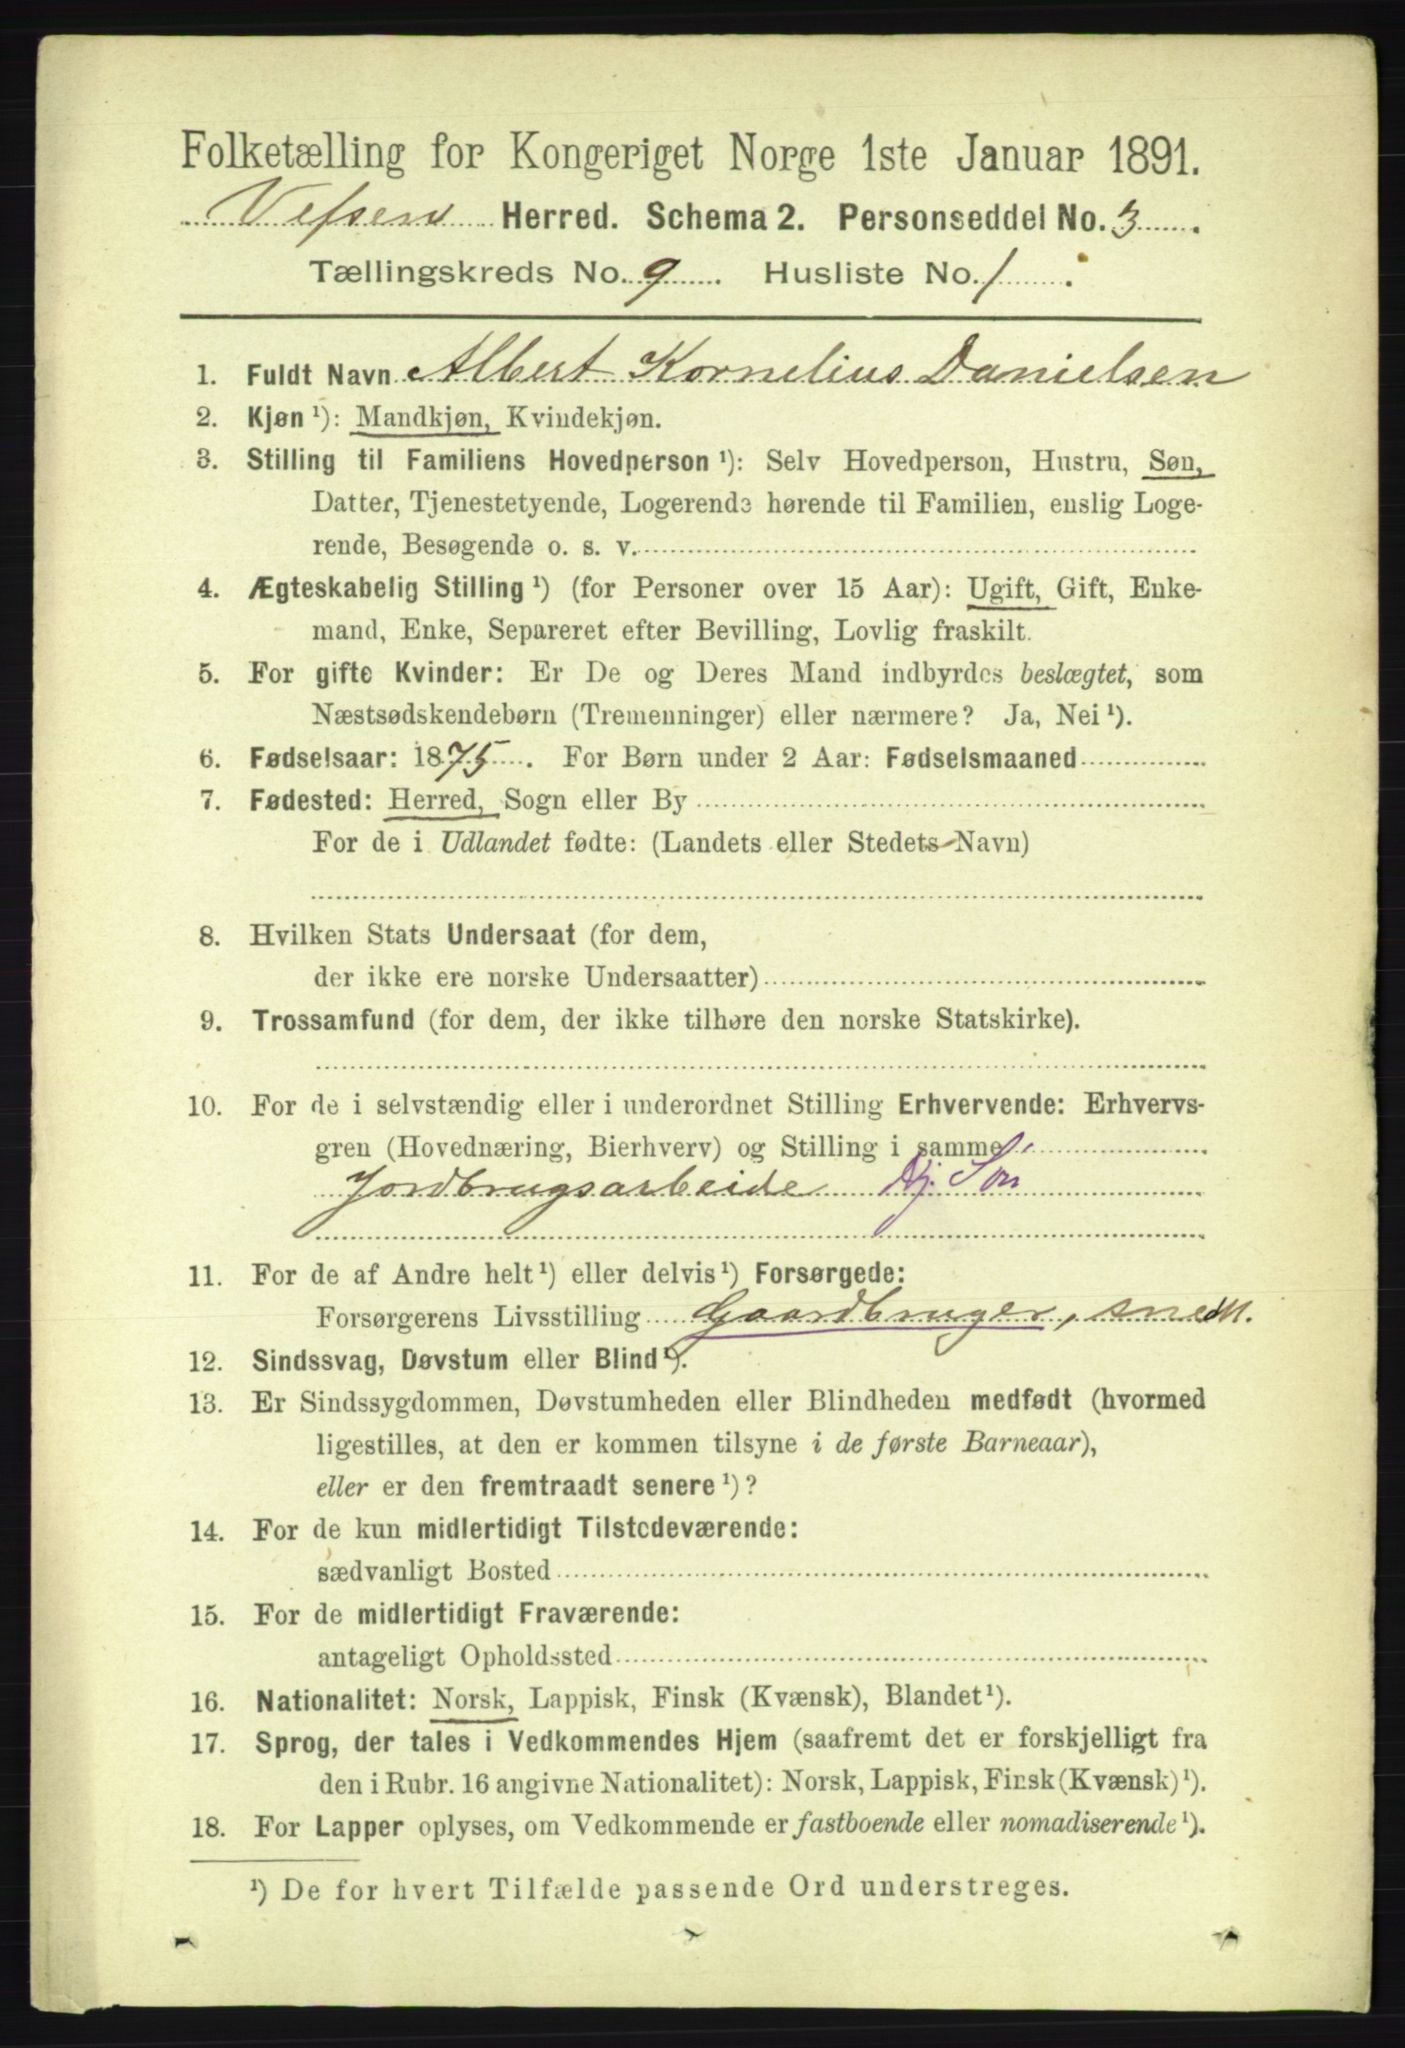 Folketælling for Kongeriget Norge 1ste Januar 1891.
Vefsen Herred. Schema 2. Personseddel No. 3
Tællingskreds No. 9 Husliste No. 1
1. Fuldt Navn Albert Kornelius Danielsen
2. Kjøn ¹): Mandkjøn, Kvindekjøn.
3. Stilling til Familiens Hovedperson ¹): Selv Hovedperson, Hustru, Søn,
Datter, Tjenestetyende, Logerende hørende til Familien, enslig Loge-
rende, Besøgende o. s. v.
4. Ægteskabelig Stilling ¹) (for Personer over 15 Aar): Ugift, Gift, Enke-
mand, Enke, Separeret efter Bevilling, Lovlig fraskilt.
5. For gifte Kvinder: Er De og Deres Mand indbyrdes beslægtet, som
Næstsødskendebørn (Tremenninger) eller nærmere? Ja, Nei ¹).
6. Fødselsaar: 1875. For Børn under 2 Aar: Fødselsmaaned
7. Fødested: Herred, Sogn eller By
For de i Udlandet fødte: (Landets eller Stedets Navn)
8. Hvilken Stats Undersaat (for dem,
der ikke ere norske Undersaatter)
9. Trossamfund (for dem, der ikke tilhøre den norske Statskirke).
10. For de i selvstændig eller i underordnet Stilling Erhvervende: Erhvervs-
gren (Hovednæring, Bierhverv) og Stilling i samme
Jordbrugsarbeide Hj. Søn
11. For de af Andre helt ¹) eller delvis ¹) Forsørgede:
Forsørgerens Livsstilling Gaardbruger,
12. Sindssvag, Døvstum eller Blind ¹).
13. Er Sindssygdommen, Døvstumheden eller Blindheden medfødt (hvormed
ligestilles, at den er kommen tilsyne i de første Barneaar),
eller er den fremtraadt senere ¹)?
14. For de kun midlertidigt Tilstedeværende:
sædvanligt Bosted
15. For de midlertidigt Fraværende:
antageligt Opholdssted
16. Nationalitet: Norsk, Lappisk, Finsk (Kvænsk), Blandet ¹).
17. Sprog, der tales i Vedkommendes Hjem (saafremt det er forskjelligt fra
den i Rubr. 16 angivne Nationalitet): Norsk, Lappisk, Finsk (Kvænsk) ¹).
18. For Lapper oplyses, om Vedkommende er fastboende eller nomadiserende ¹).
¹) De for hvert Tilfælde passende Ord understreges.